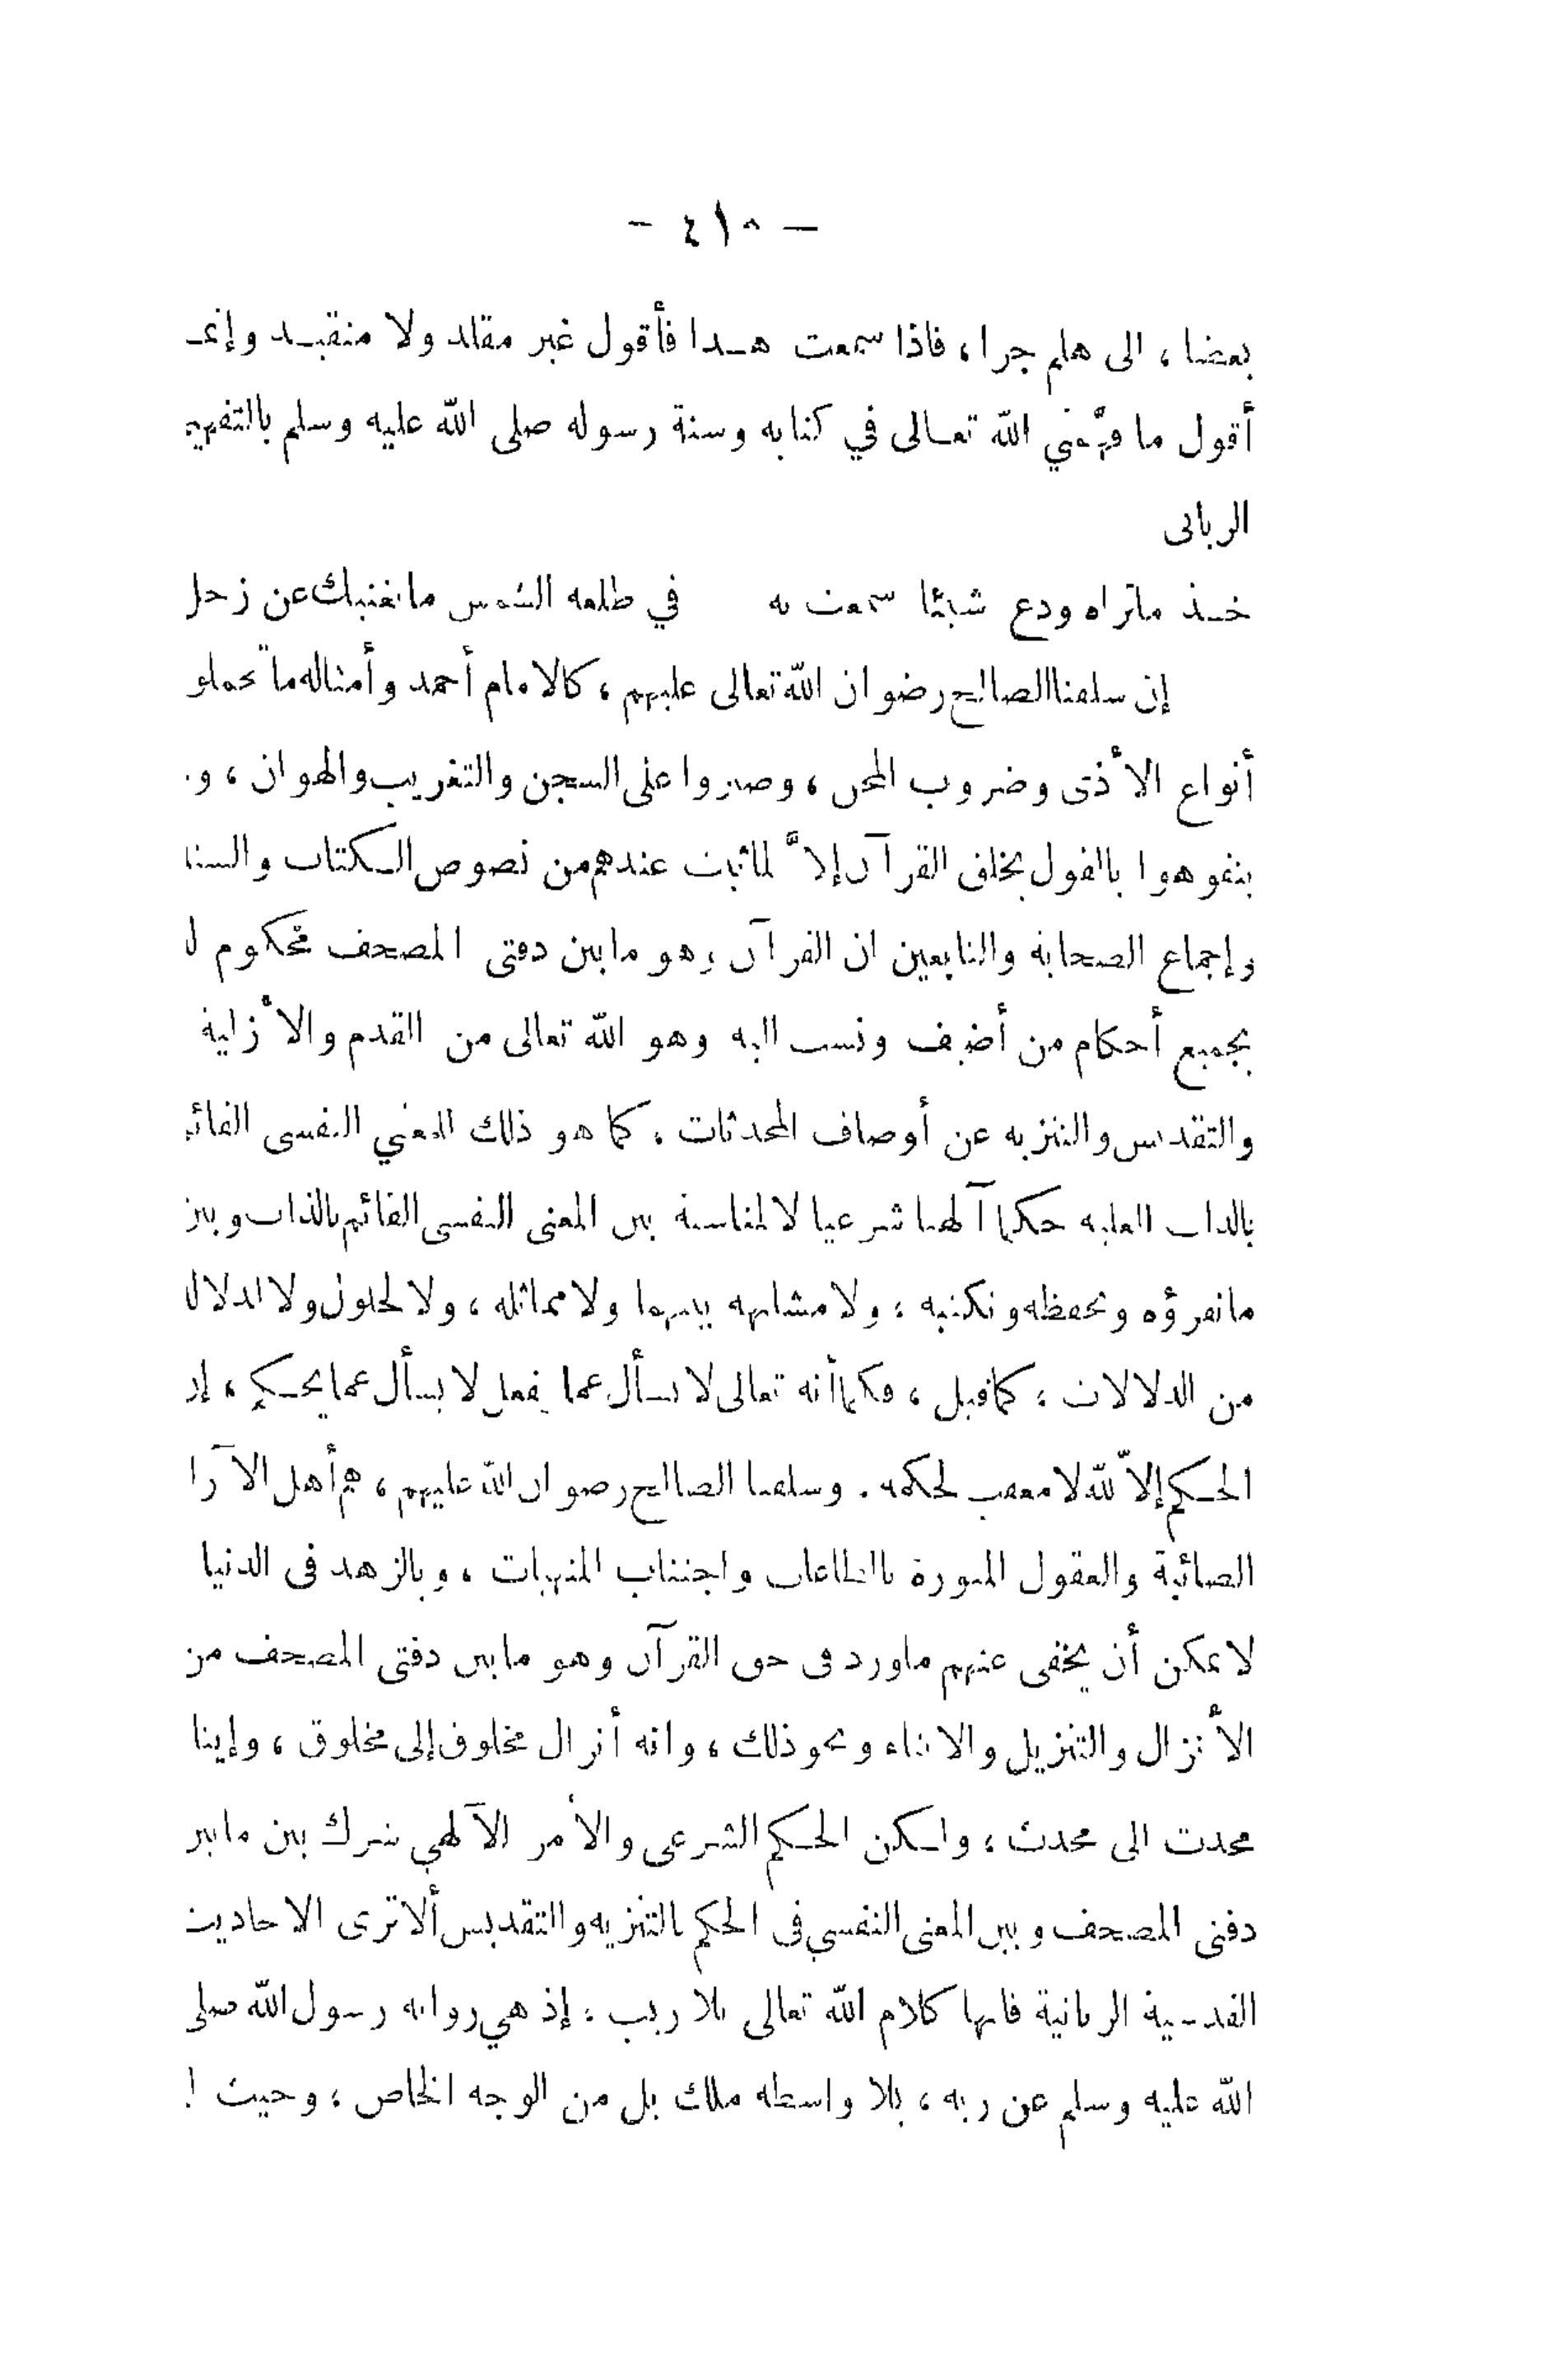 — ٤١٥ —
بعضا ، الى هلم جرا ، فاذا سمعت هـذا فأقول غير مقلد ولا متقيـد وإنمـ
أقول ما فهَّمني الله تعـالى في كتابه وسنة رسوله صلى الله عليه وسلم بالتفهيم
الربانى
خـذ ماتراه ودع شيئا سمعت به في طلعة الشمس مايغنيك عن زحل
إن سلفنا الصالح رضوان الله تعالى عليهم ، كالامام أحمد وأمثاله ما تحملو
أنواع الأذى وضروب المحن ، وصبروا على السجن والتغريب والهوان ، و
يتفوهوا بالقول بخلق القرآن إلاَّ لما ثبت عندهم من نصوص الكتاب والسنة
وإجماع الصحابة والتابعين ان القرآن وهو مابين دفتى المصحف محكوم ل
بجميع أحكام من أضيف ونسب اليه وهو الله تعالى من القدم والأزلية
والتقديس والتنزيه عن أوصاف المحدثات ، كما هو ذلك المعني النفسى القائم
بالذات العلية حكما آلهيا شرعيا لا لمناسبة بين المعنى النفسى القائم بالذات وبين
مانقرؤه ونحفظه ونكتبه ، ولا مشابهة بينهما ولا مماثلة ، ولا لحلول ولا لدلالة
من الدلالات ، كما قيل ، فكما أنه تعالى لا يسأل عما يفعل لا يسأل عما يحكم ، إن
الحكم إلاّ لله لا معقب لحكمه . وسلفنا الصالح رضوان الله عليهم ، هم أهل الآرا
الصائبة والعقول المنورة بالطاعات واجتناب المنهيات ، وبالزهد فى الدنيا
لا يمكن أن يخفى عنهم ماورد فى حق القرآن وهو مابين دفتى المصحف من
الأنزال والتنزيل والاتيان ونحو ذلك ، وانه أنزال مخلوق إلى مخلوق ، وإيتا
محدث الى محدث ، ولـكن الحـكم الشرعى والأمر الآلهي شرك بين مابين
دفتى المصحف وبين المعنى النفسي فى الحكم بالتنزيه والتقديس ألا ترى الاحاديث
القدسية الربانية فانها كلام الله تعالى بلا ريب ، إذ هي رواية رسول الله صلى
الله عليه وسلم عن ربه ، بلا واسطة ملك بل من الوجه الخاص ، وحيث ا